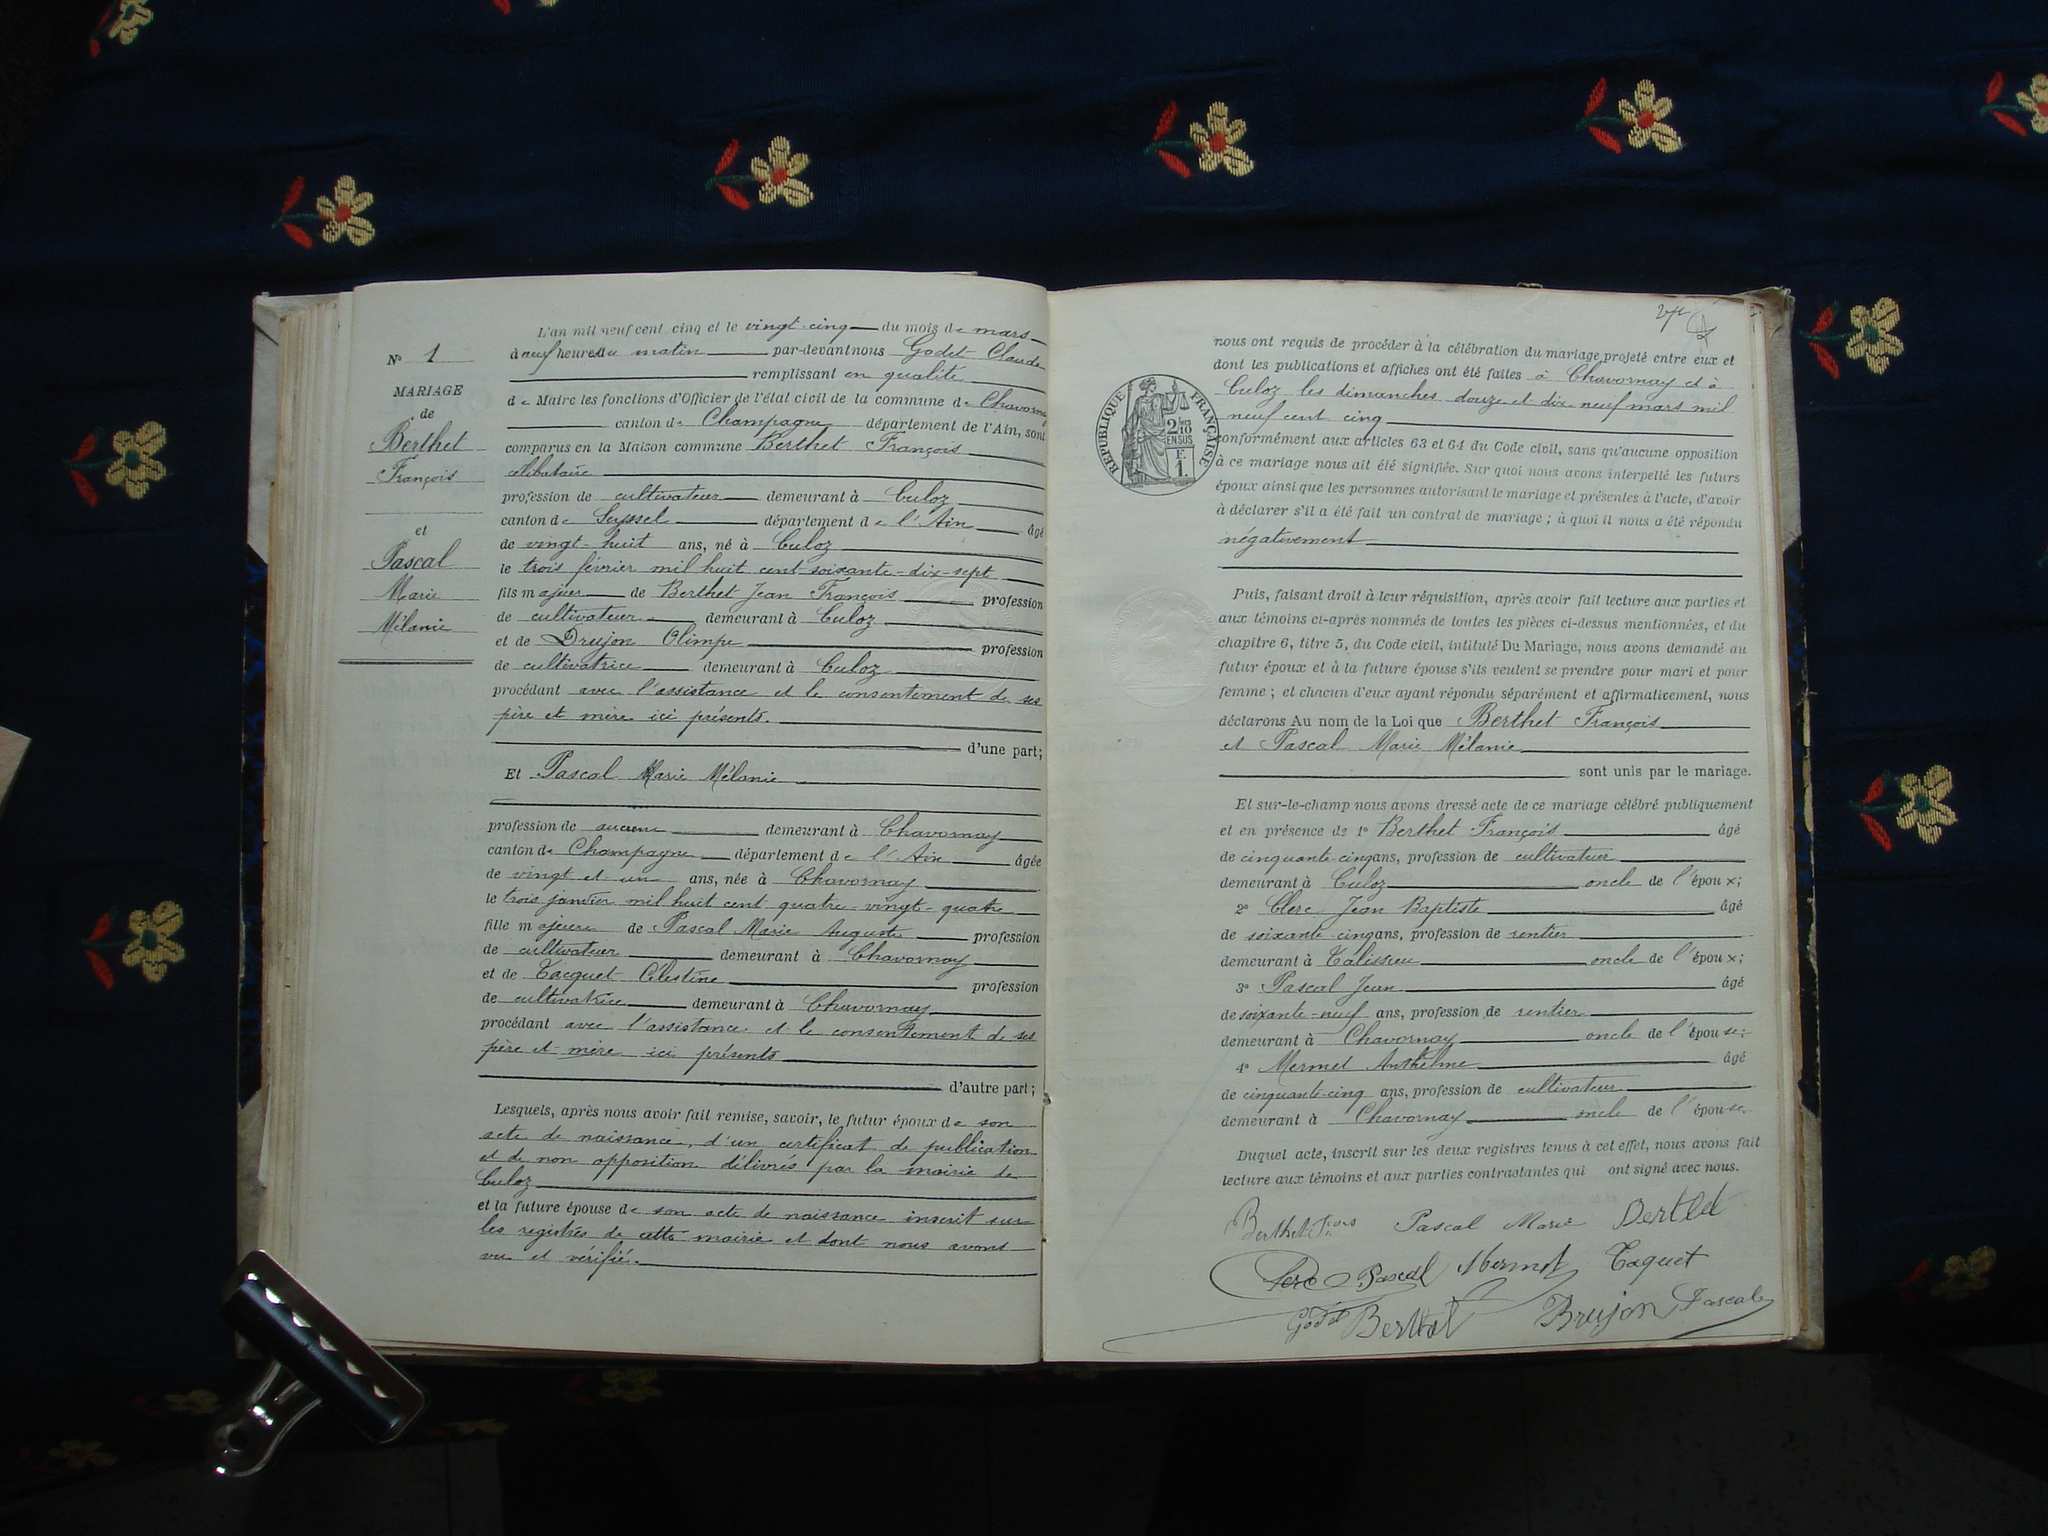 N° 1
MARIAGE
de
Berthet
François
et
Pascal
Marie
Mélanie
L'an mil neuf cent cinq et le vingt-cinq du mois de mars
à neuf heures du matin par-devant nous Godet Claude
remplissant en qualité
de Maire les fonctions d'Officier de l'état civil de la commune de Chavornay
canton de Champagne département de l'Ain, sont
comparus en la Maison commune Berthet François
célibataire
profession de cultivateur demeurant à Culoz
canton de Seyssel département de l'Ain âgé
de vingt-huit ans, né à Culoz
le trois février mil huit cent soixante-dix-sept
fils majeur de Berthet Jean François profession
de cultivateur demeurant à Culoz
et de Drujon Olimpe profession
de cultivatrice demeurant à Culoz
procédant avec l'assistance et le consentement de ses
père et mère ici présents.
d'une part;
Et Pascal Marie Mélanie
profession de aucune demeurant à Chavornay
canton de Champagne département de l'Ain âgée
de vingt et un ans, née à Chavornay
le trois janvier mil huit cent quatre-vingt-quatre
fille majeure de Pascal Marie Auguste profession
de cultivateur demeurant à Chavornay
et de Tacquet Célestine profession
de cultivatrice demeurant à Chavornay
procédant avec l'assistance et le consentement de ses
père et mère ici présents
d'autre part;
Lesquels, après nous avoir fait remise, savoir, le futur époux de son
acte de naissance, d'un certificat de publication
et de non opposition délivrés par la mairie de
Culoz
et la future épouse de son acte de naissance inscrit sur
les registres de cette mairie et dont nous avons
vu et vérifié.
nous ont requis de procéder à la célébration du mariage projeté entre eux et
dont les publications et affiches ont été faites à Chavornay et à
Culoz les dimanches douze et dix-neuf mars mil
neuf cent cinq
conformément aux articles 63 et 64 du Code civil, sans qu'aucune opposition
à ce mariage nous ait été signifiée. Sur quoi nous avons interpellé les futurs
époux ainsi que les personnes autorisant le mariage et présentes à l'acte, d'avoir
à déclarer s'il a été fait un contrat de mariage; à quoi il nous a été répondu
négativement
RÉPUBLIQUE FRANÇAISE
2/10
EN SUS
F.
1.
Puis, faisant droit à leur réquisition, après avoir fait lecture aux parties et
aux témoins ci-après nommés de toutes les pièces ci-dessus mentionnées, et du
chapitre 6, titre 5, du Code civil, intitulé Du Mariage, nous avons demandé au
futur époux et à la future épouse s'ils veulent se prendre pour mari et pour
femme; et chacun d'eux ayant répondu séparément et affirmativement, nous
déclarons Au nom de la Loi que Berthet François
et Pascal Marie Mélanie
sont unis par le mariage.
Et sur-le-champ nous avons dressé acte de ce mariage célébré publiquement
et en présence de 1° Berthet François âgé
de cinquante-cinq ans, profession de cultivateur
demeurant à Culoz oncle de l'époux;
2° Clerc Jean Baptiste âgé
de soixante-cinq ans, profession de rentier
demeurant à Talissieu oncle de l'époux;
3° Pascal Jean âgé
de soixante-neuf ans, profession de rentier
demeurant à Chavornay oncle de l'épouse;
4° Mermet Anthelme âgé
de cinquante-cinq ans, profession de cultivateur
demeurant à Chavornay oncle de l'épouse.
Duquel acte, inscrit sur les deux registres tenus à cet effet, nous avons fait
lecture aux témoins et aux parties contractantes qui ont signé avec nous.
Berthet Fçois Pascal Marie Berthet
Clerc Pascal Mermet Taquet
Godet Berthet Drujon Pascal